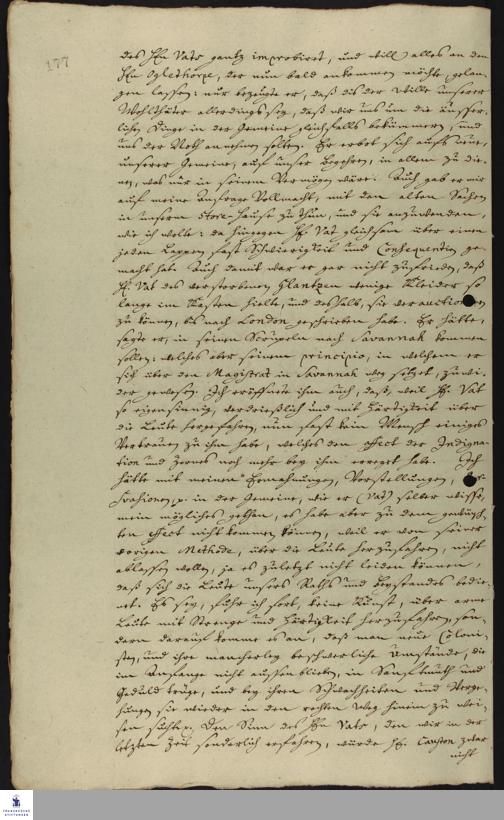 177
des Hn Vats gantz improbiret, und will alles an den
Hn Oglethorpe, der nun bald ankommen möchte gelan-
gen lassen: nur bezeugte er, daß dis der Wille unserer
Wohlthäter allerdings sey, daß wir uns um die äusser-
lichen Dinge in der Gemeine gleichfalls bekümmern, und
uns der Noth annehmen solten. Er erbot sich aufs neue,
unserer Gemeine, auf unser Begehren, in allem zu die-
nen, was nur in seinem Vermögen wäre. Auch gab er mir
auf meine Anfrage Vollmacht, mit den alten Sachen
in unserm Store-Hause zu thun, und sie anzuwenden,
wie ich wolte: da hingegen H. Vat gleichsam über einen
jeden Lappen fast Schwierigkeit und Consequentien ge-
macht hat. Auch damit war er gar nicht zufrieden, daß
H. Vat des verstorbenen Glantzen wenige Kleider so
lange im Kasten hielte, und deshalb, sie verauctioniren
zu können, bis nach London geschrieben habe. Er hätte,
sagte er, in seinen Scrupeln nach Savannah kommen
sollen; welches aber seinem principio, in welchem er
sich über den Magistrat in Savannah weg setzet, zuwi-
der gewesen. Ich eröffnete ihm auch, daß, weil H. Vat
so eigensinnig, verdrießlich und mit Härtigkeit über
die Leute hergefahren, nun fast kein Mensch einiges
Vertrauen zu ihm habe, welches den effect der Indigna-
tion und Zornes noch mehr bey ihm erreget habe. Ich
hätte mit meinen Ermahnungen, Vorstellungen,
in der Gemeine, wie er (Vat) selber wisse,
mein mögliches gethan, es habe aber zu dem gewünsch-
ten effect nicht kommen können, weil er von seiner
vorigen Methode, über die Leute herzufahren, nicht
ablassen wollen, ja es zuletzt nicht leiden können,
daß sich die Leute unsers Raths und Beystandes bedie-
net. Es sey, fuhr ich fort, keine Kunst, über arme
Leute mit Strenge und Härtigkeit herzufahren, son-
dern darauf komme es an, daß man neue Coloni-
sten, und ihre mancherley beschwerliche Umstände, die
im Anfange nicht aussenblieben, in Sanftmuth und
Geduld trüge, und bey ihren Schwachheiten und Verge-
hungen sie wieder in den rechten Weg hinein zu wei-
sen suchte. Den Sinn des Hn Vats, den wir in der
letzten Zeit sonderlich erfahren, würde H. Causton zwar
nicht
FRANCKESCHE
STIFTUNGEN